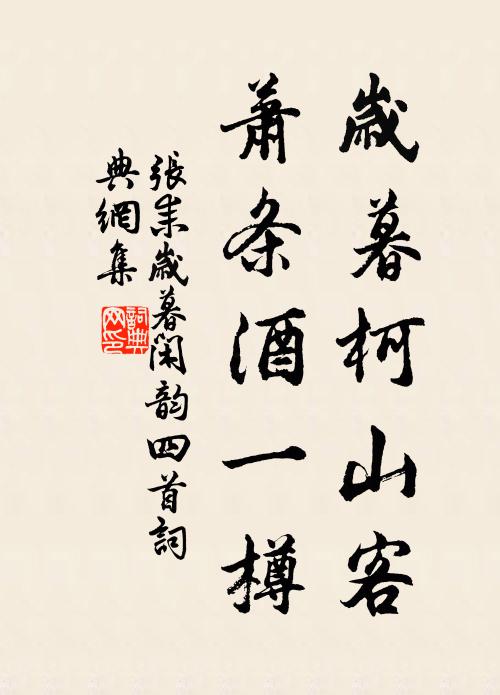 歲暮柯山客
蕭条酒一樽
張耒歲暮閑韵四首詞
典網集
詞典
网印